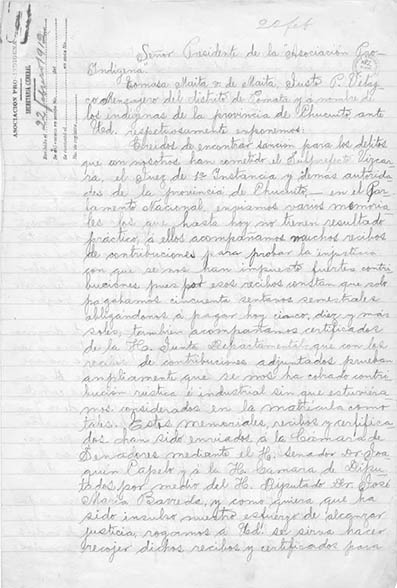 22 feb
ASOCIACION PRO-INDIGENA
SECRETARIA GENERAL
Recibido el 22 febrero 1912
Señor Presidente de la "Asociación Pro-
Indígena".
Tomasa Maita v. de Maita, Justo P.
Mensajero del distrito de Pomata y á nombre de
los indígenas de la provincia de Chucuito, ante
Ud. respetuosamente exponemos:
Creidos de encontrar sanción para los delitos
que con nosotros han cometido el Subprefecto Vizcar
ra, el Juez de 1ra Instancia y demás autorida
des de la provincia de Chucuito — en el Par-
lamento Nacional, enviamos varios memoria
les los que hasta hoy no tienen resultado
práctico, á ellos acompañamos muchos recibos
de contribuciones para probar la injusticia
con que se nos han impuesto fuertes contri
buciones pues por esos recibos constan que solo
pagabamos cincuenta sentavos semestrales
obligandonos á pagar hoy cinco, diez y más
soles, tambien acompañamos certificados
de la H. Junta Departamental que con los
recibos de contribuciones adjuntados prueban
ampliamente que se nos ha cobrado contri
bución rústica é industrial sin que estuviera
mos considerados en la matrícula como
tales. Estos memoriales, recibos y certifica
dos han sido enviados á la Cámara de
Senadores mediante el H. Senador Dr. Joa
quien Capelo y á la H. Camara de Dipu
tados por medio del H. Diputado Dr. José
María Barreda, y como quiera que ha
sido insulso nuestro esfuerzo de alcanzar
justicia, rogamos á Ud. se sirva hacer
recojer dichos recibos y certificados para